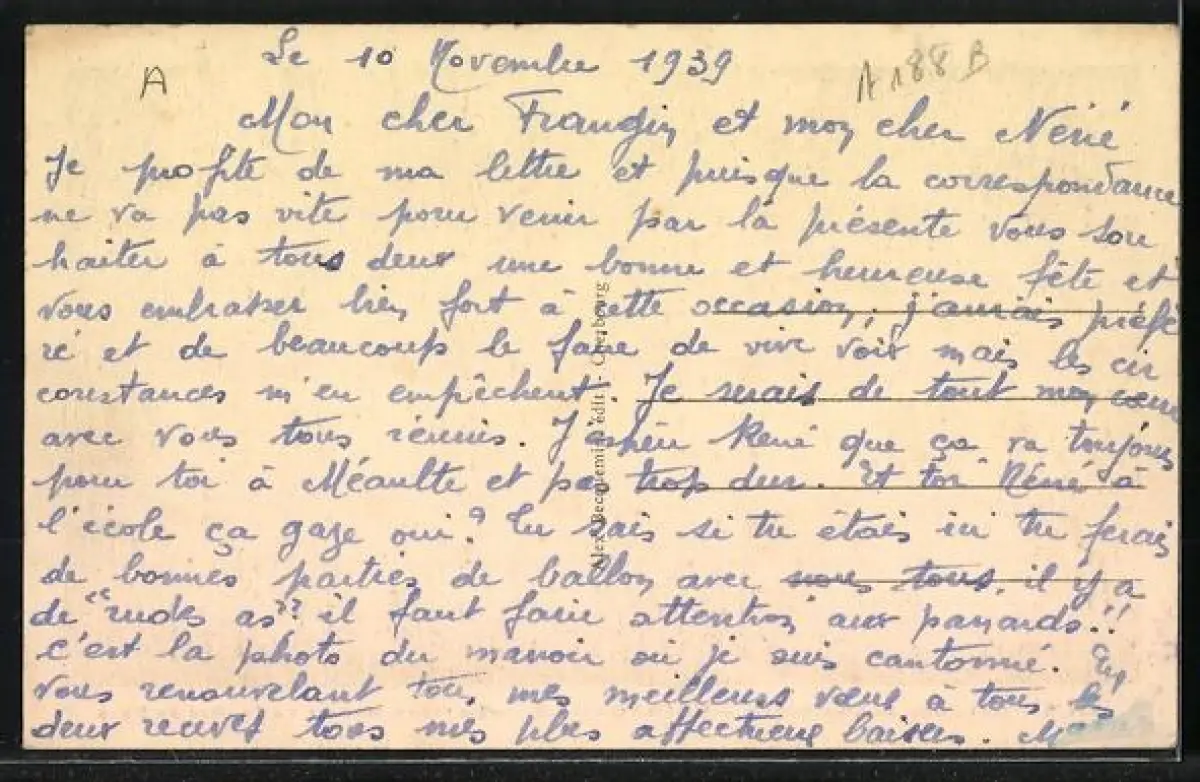 Le 10 Novembre 1939
A
A 188 B
Mon cher Frangin et mon cher Néné
Je profite de ma lettre et puisque la correspondance
ne va pas vite pour venir par la présente vous sou
haiter à tous deux une bonne et heureuse fête et
vous embrasser bien fort à cette occasion, j'aurais préfé
ré et de beaucoup le faire de vive voix mais les cir
constances m'en empêchent. Je serais de tout mon coeur
avec vous tous réunis. J'espère René que ça va toujours
pour toi à Méaulte et pas trop dur. Et toi Néné à
l'école ça gaze oui? Tu sais si tu étais ici tu ferais
de bonnes parties de ballon avec nous tous, il y a
de "rudes as" il faut faire attention aux panards!!
c'est la photo du manoir où je suis cantonné. En
vous renouvelant tous mes meilleurs voeux à tous les
deux recevez tous mes plus affectueux baisers.
Alex. Becquemin, édit. - Cherbourg